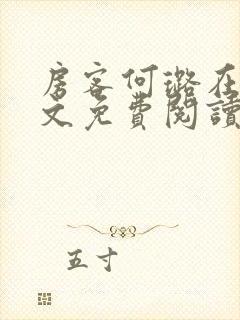 房客何璐在
文免費閱讀
五寸